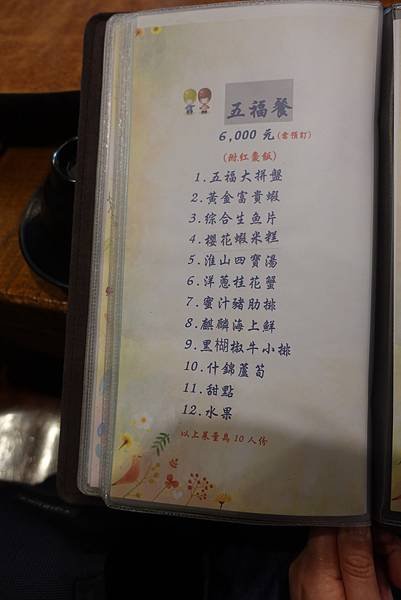 五福餐
6,000 元(需預訂)
(附.紅棗飯)
1.五福大拼盤
2.黃金富貴蝦
3.綜合生魚片
4.櫻花蝦米糕
5.淮山四寶湯
6.洋蔥桂花蟹
7.蜜汁豬肋排
8.麒麟海上鮮
9.黑楜椒牛小排
10.什錦蘆筍
11.甜點
12.水果
以上菜量為 10 人份